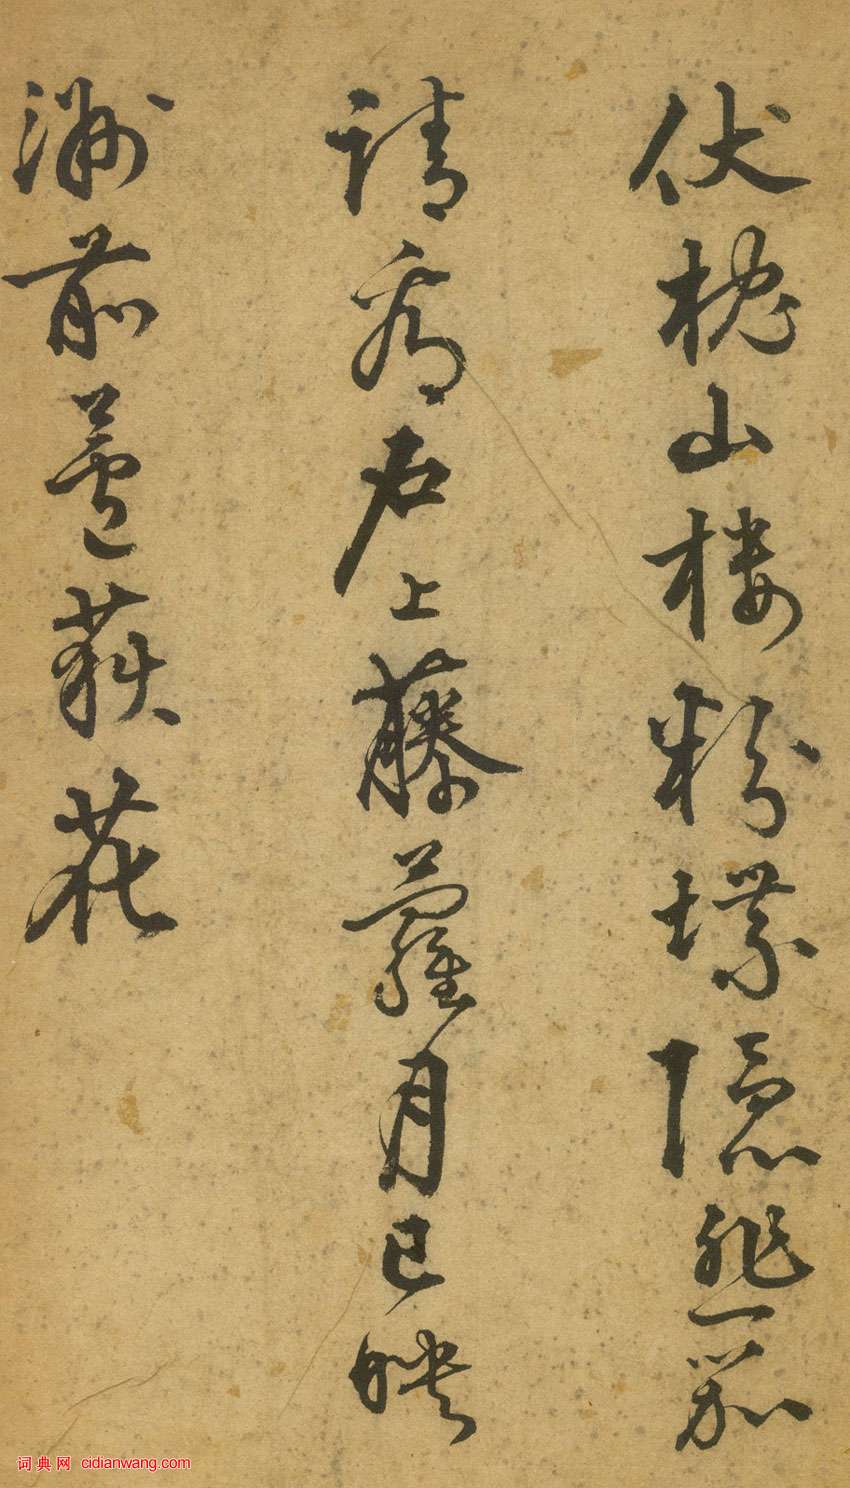 伏枕山樓粉堞隱悲笳
請看石上藤蘿月已映
洲前蘆荻花
词典网 cidianwang.com